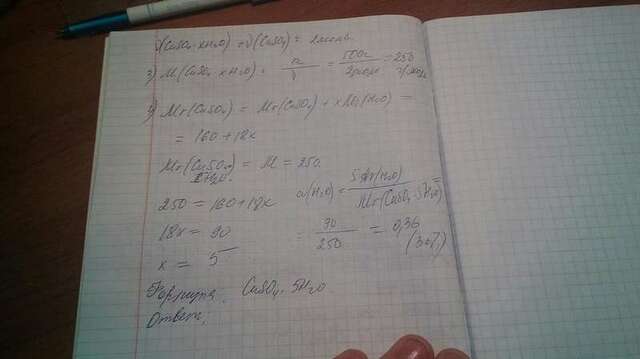 ν(CuSO₄·xH₂O) = ν(CuSO₄) = 2моль.
3) M(CuSO₄·xH₂O) = m/ν = 500г/2моль = 250 г/моль
4) Mr(CuSO₄) = Mr(CuSO₄) + xMr(H₂O) =
= 160+18x
Mr(CuSO₄·xH₂O) = M = 250.
250 = 160+18x
18x = 90
x = 5
ω(H₂O) = 5Mr(H₂O)/Mr(CuSO₄·5H₂O) =
= 90/250 = 0,36
(36%)
Формула: CuSO₄·5H₂O
Ответ: